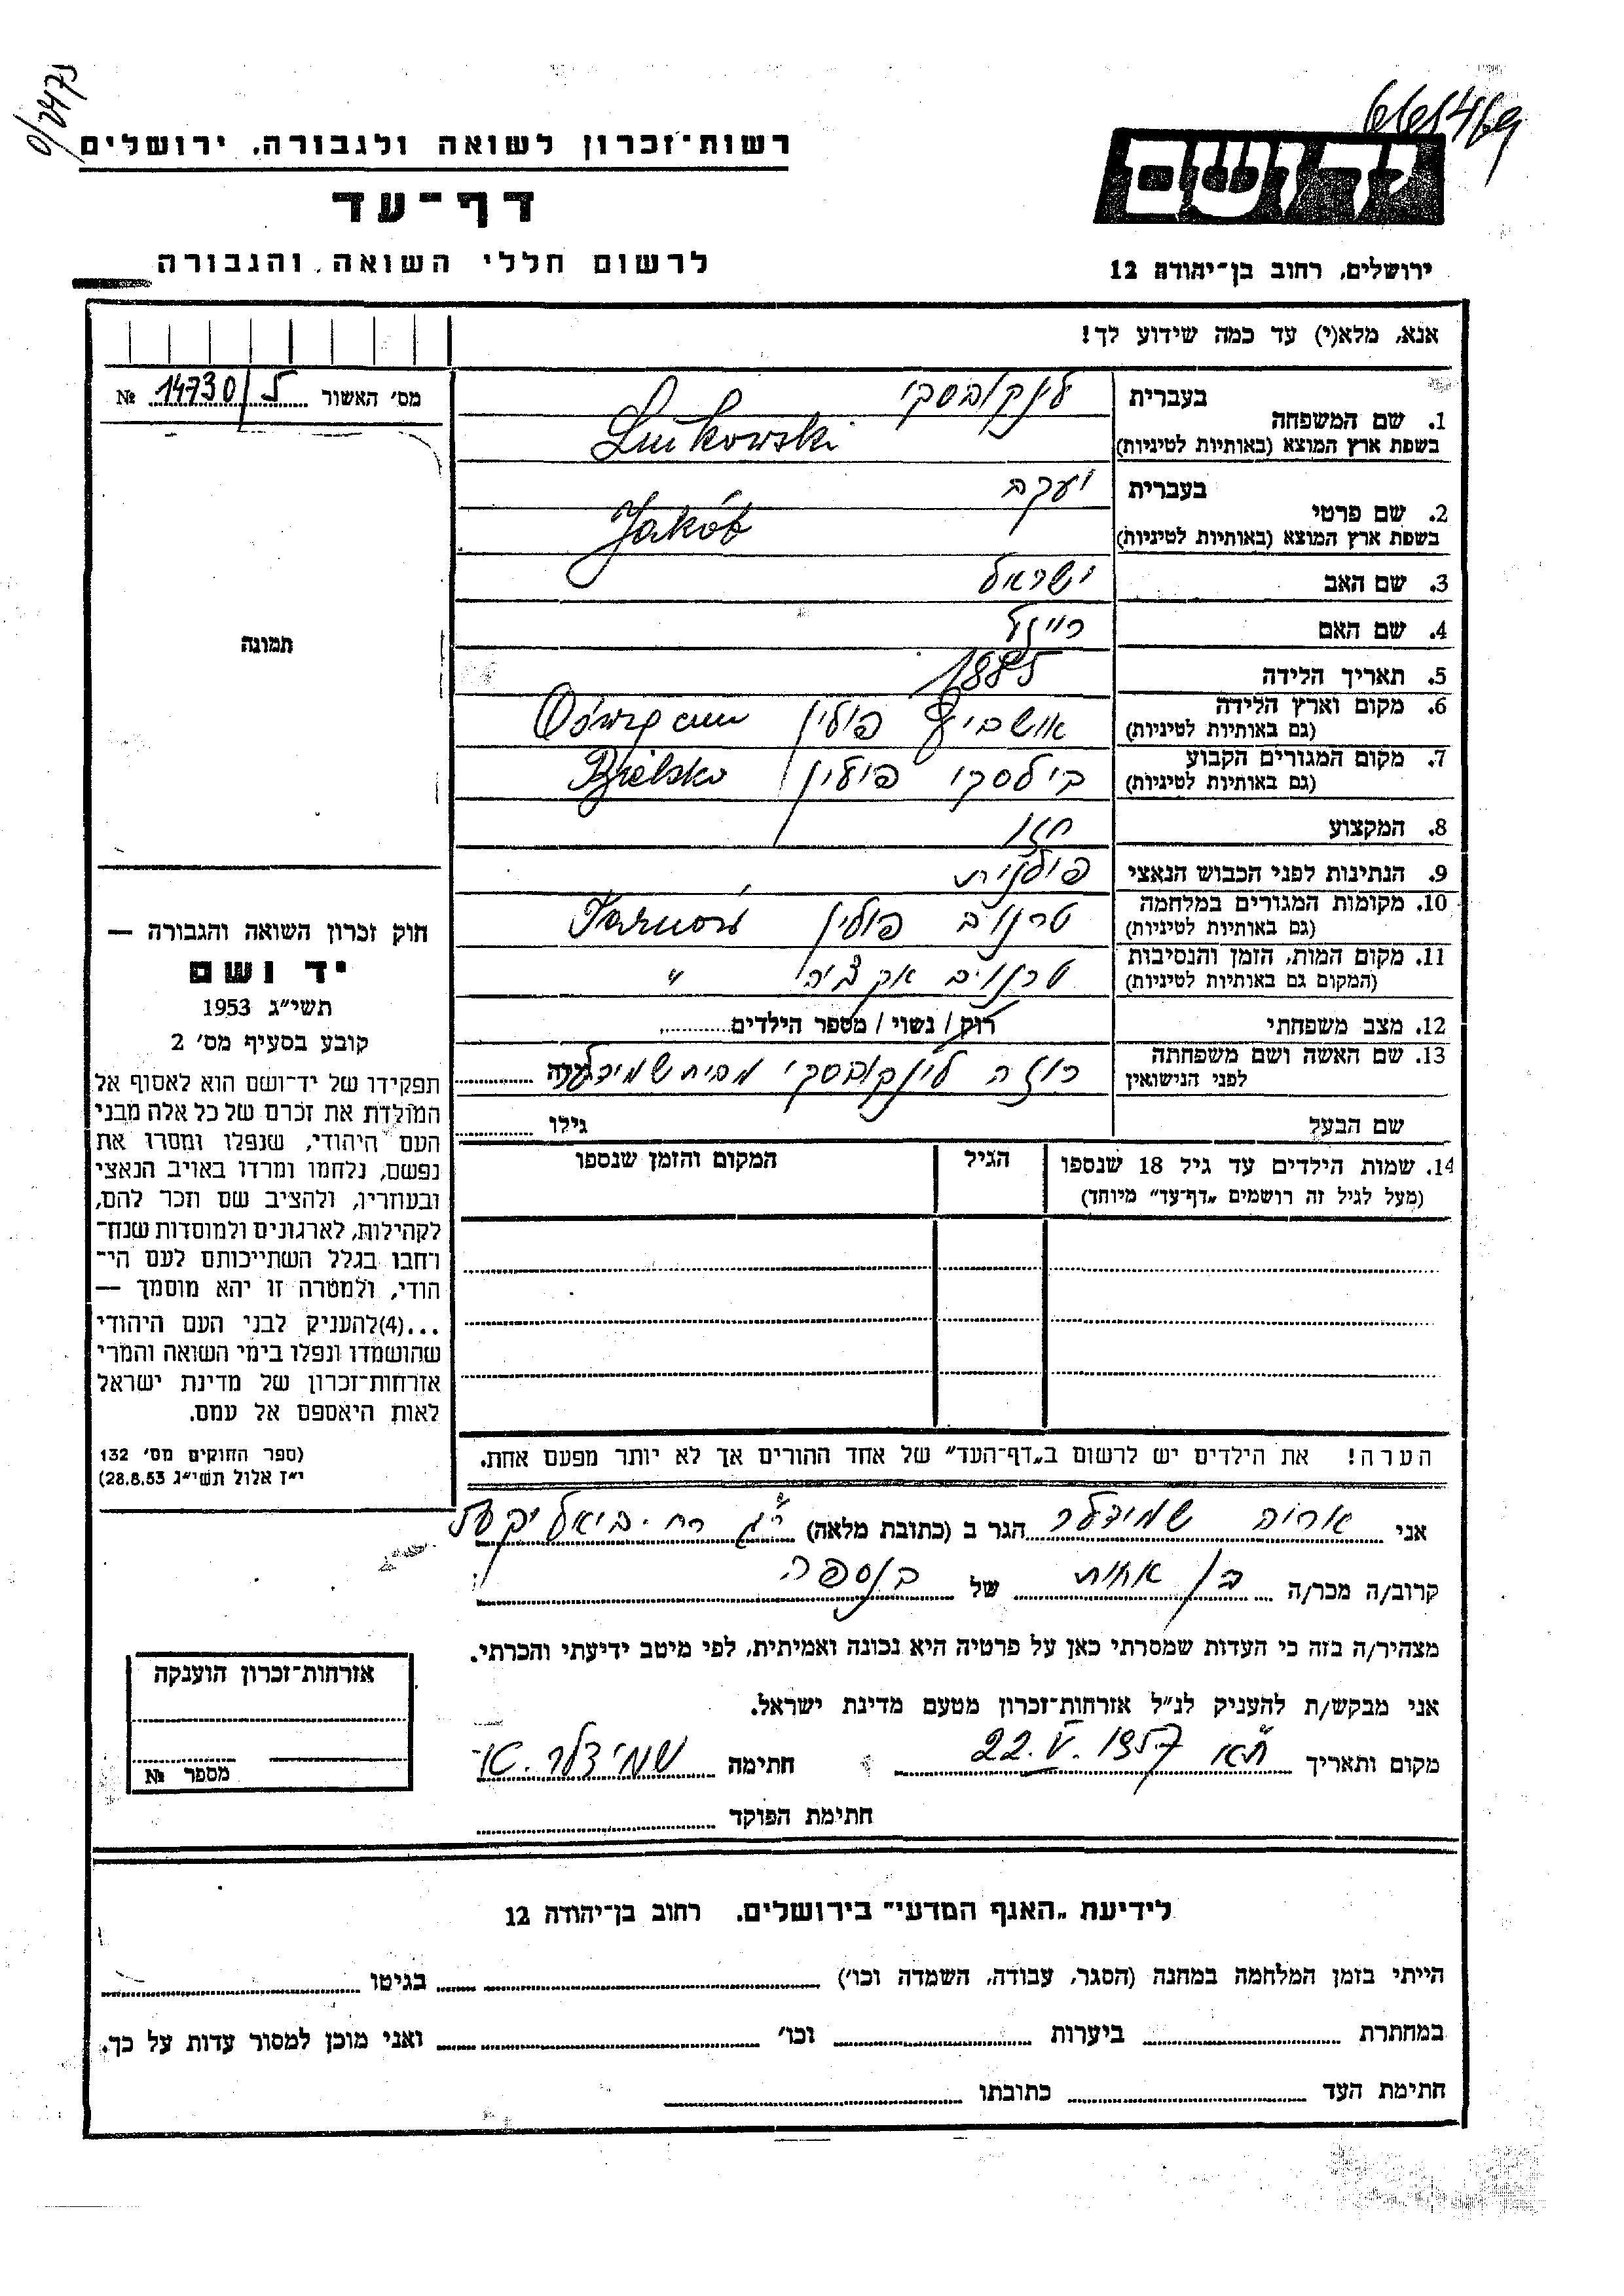 0/2475
661469
רשות־זכרון לשואה ולגבורה, ירושלים
ידושם
דף־עד
לרשום חללי השואה והגבורה
ירושלים, רחוב בן־יהודה 12
אנא, מלא(י) עד כמה שידוע לך!
מס׳ האשור 14730/ל №
בעברית לינקובסקי
1. שם המשפחה
בשפת ארץ המוצא (באותיות לטיניות) Linkowski
בעברית יעקב
2. שם פרטי
בשפת ארץ המוצא (באותיות לטיניות) Jakób
3. שם האב ישראל
4. שם האם רייזל
5. תאריך הלידה 1885
6. מקום וארץ הלידה
(גם באותיות לטיניות) פולין
7. מקום המגורים הקבוע
(גם באותיות לטיניות) בילסקו פולין Bielsko
8. המקצוע חזן
9. הנתינות לפני הכבוש הנאצי פולנית
10. מקומות המגורים במלחמה
(גם באותיות לטיניות) טרנוב פולין Tarnów
11. מקום המות, הזמן והנסיבות
(המקום גם באותיות לטיניות) טרנוב אקציה "
12. מצב משפחתי רוק / נשוי / מספר הילדים
13. שם האשה ושם משפחתה
לפני הנישואין רוזה לינקובסקי מבית שמידלר
שם הבעל גילו
14. שמות הילדים עד גיל 18 שנספו הגיל המקום והזמן שנספו
(מעל לגיל זה רושמים „דף־עד” מיוחד)
הערה! את הילדים יש לרשום ב„דף־העד” של אחד ההורים אך לא יותר מפעם אחת.
תמונה
חוק זכרון השואה והגבורה —
יד ושם
תשי״ג 1953
קובע בסעיף מס׳ 2
תפקידו של יד־ושם הוא לאסוף אל
המולדת את זכרם של כל אלה מבני
העם היהודי, שנפלו ומסרו את
נפשם, נלחמו ומרדו באויב הנאצי
ובעוזריו, ולהציב שם וזכר להם,
לקהילות, לארגונים ולמוסדות שנח־
רחבו בגלל השתייכותם לעם הי־
הודי, ולמטרה זו יהא מוסמך —
...(4)להעניק לבני העם היהודי
שהושמדו ונפלו בימי השואה והמרי
אזרחות־זכרון של מדינת ישראל
לאות היאספם אל עמם.
(ספר החוקים מס׳ 132
י״ז אלול תשי״ג 28.8.53)
אני אריה שמידלר הגר ב (כתובת מלאה) ר״ג רח. ביאליק
קרוב/ה מכר/ה בן אחות של בנספה
מצהיר/ה בזה כי העדות שמסרתי כאן על פרטיה היא נכונה ואמיתית, לפי מיטב ידיעתי והכרתי.
אני מבקש/ת להעניק לנ״ל אזרחות־זכרון מטעם מדינת ישראל.
מקום ותאריך ת״א 22.V.1957 חתימה שמידלר
חתימת הפוקד
אזרחות־זכרון הוענקה
מספר №
לידיעת „האגף המדעי” בירושלים. רחוב בן־יהודה 12
הייתי בזמן המלחמה במחנה (הסגר, עבודה, השמדה וכו׳) בגיטו
במחתרת ביערות וכו׳ ואני מוכן למסור עדות על כך.
חתימת העד כתובתו